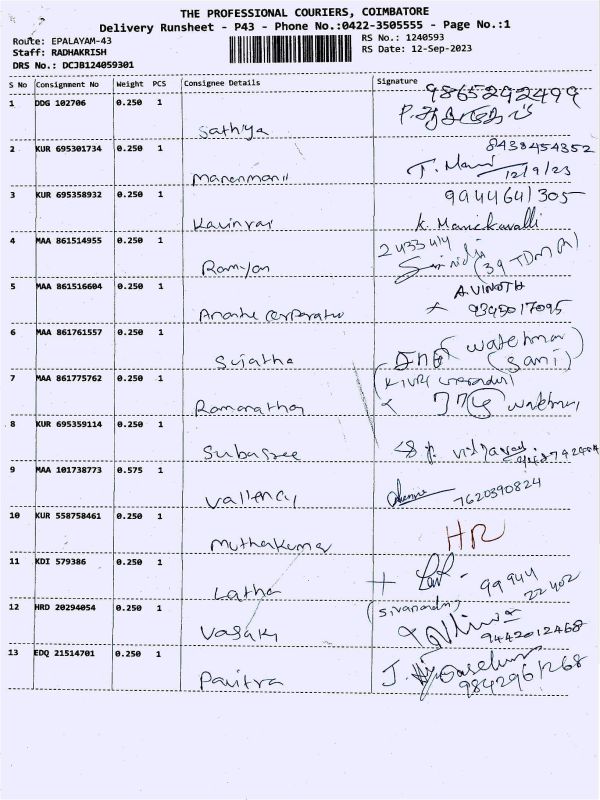 THE PROFESSIONAL COURIERS, COIMBATORE
Delivery Runsheet - P43 - Phone No.:0422-3505555 - Page No.:1
Route: EPALAYAM-43
RS No.: 1240593
Staff: RADHAKRISH
RS Date: 12-Sep-2023
DRS No.: DCJB124059301
S No Consignment No Weight PCS Consignee Details Signature
9865292499
1 DDG 102706 0.250 1
Sathya
8438454352
2 KUR 695301734 0.250 1
T. Mani 12/9/23
3 KUR 695358932 0.250 1 9944641305
Kavinraj K. Manickavalli
4 MAA 861514955 0.250 1 2433414
Ramyan
5 MAA 861516604 0.250 1 A.VINOTH
9345017095
6 MAA 861761557 0.250 1
Sujatha (Sami)
7 MAA 861775762 0.250 1
8 KUR 695359114 0.250 1
Subasree
9 MAA 101738773 0.575 1
7620390824
10 KUR 558758461 0.250 1
Muthukumar HR
11 KDI 579386 0.250 1
Latha 99944
22402
12 HRD 20294054 0.250 1
Vasaki 9442012468
13 EDQ 21514701 0.250 1
Pavitra
9842961268